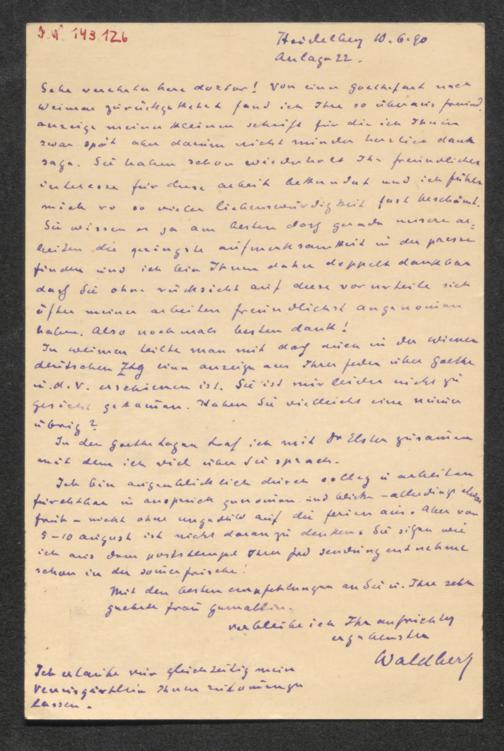 I.N. 149.126
Heidelberg 10.6.90
Anlage 22.
Sehr verehrter herr doctor! Von einer Goethefart nach
Weimar zurückgekehrt fand ich Ihre so überaus freundl.
anzeige meiner kleinen schrift für die ich Ihnen
zwar spät aber darum nicht minder herzlich dank
sage. Sie haben schon wiederholt Ihr freundliches
interesse für diese arbeit bekundet und ich fühle
mich vo so vieler liebenswürdigkeit fast beschämt.
Sie wissen es ja am besten dasz gerade unsere ar=
beiten die geringste aufmerksamkeit in der presse
finden und ich bin Ihnen daher doppelt dankbar
dasz Sie ohne rücksicht auf diese vorurteile sich
öfter meiner arbeiten freundlichst angenommen
haben. Also nochmals besten dank!
In Weimar teilte man mit dasz auch in der Wiener
deutschen Ztg eine anzeige aus Ihrer feder über Goethe
u. d. V. erschienen ist. Sie ist mir leider nicht zu
gesicht gekommen. Haben Sie vielleicht eine numer
übrig?
In den Goethetagen traf ich mit Dr Elster zusammen
mit dem ich viel über Sie sprach.
Ich bin augenblicklich durch colleg u arbeiten
furchtbar in anspruch genommen und blicke – allerdings etwas
früh – nicht ohne ungeduld auf die ferien aus. Aber vor
5–10 august ist nicht daran zu denken. Sie sizen wie
ich aus dem poststempel Ihrer sendung entnehme
schon in der somerfrische!
Mit den besten empfehlungen an Sie u. Ihre sehr
geehrte frau gemahlin.
verbleibe ich Ihr aufrichtig
ergebenster
Waldberg
Ich erlaube mir gleichzeitig mein
Venusgärtlein Ihnen zukommen zu
lassen.